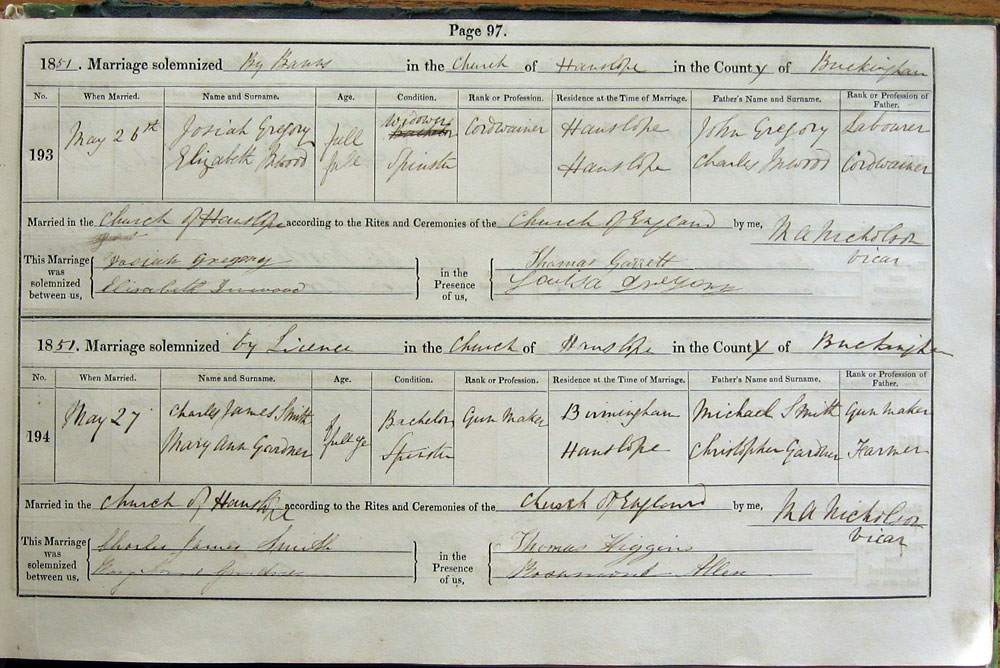 Page 97.
1851. Marriage solemnized By Banns in the Church of Hanslope in the County of Buckingham
No. When Married. Name and Surname. Age. Condition. Rank or Profession. Residence at the Time of Marriage. Father's Name and Surname. Rank or Profession of Father.
193 May 26th Josiah Gregory full Widower Bachelor Cordwainer Hanslope John Gregory Labourer
Elizabeth Inwood full Spinster Hanslope Charles Inwood Cordwainer
Married in the Church of Hanslope according to the Rites and Ceremonies of the Church of England by me, M A Nicholson
Vicar
This Marriage was solemnized between us, Josiah Gregory in the Presence of us, Thomas Garrett
Elisabeth Inwood Louisa Gregory
1851. Marriage solemnized by Licence in the Church of Hanslope in the County of Buckingham
No. When Married. Name and Surname. Age. Condition. Rank or Profession. Residence at the Time of Marriage. Father's Name and Surname, Rank or Profession of Father.
194 May 27 Charles James Smith full age Bachelor Gun Maker Birmingham Michael Smith Gun Maker
Mary Ann Gardner Spinster Hanslope Christopher Gardner Farmer
Married in the Church of Hanslope according to the Rites and Ceremonies of the Church of England by me, M A Nicholson
Vicar
This Marriage was solemnized between us, Charles James Smith in the Presence of us, Thomas Higgins
Rosamont Allen